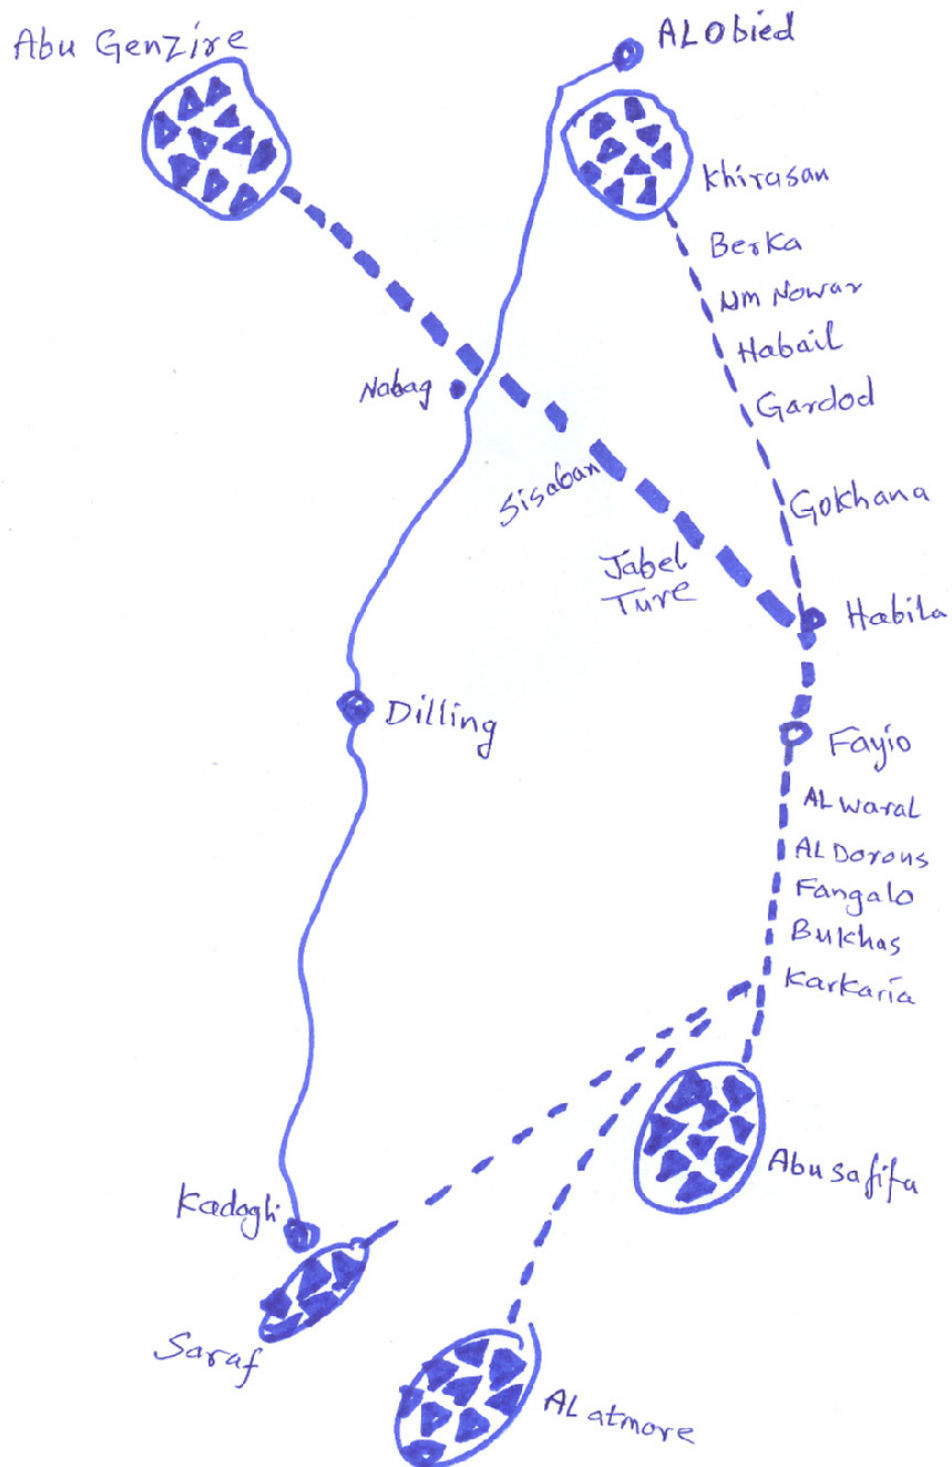 Abu Genzire
ALObied
Khirasan
Berka
Um Nowar
Habail
Gardod
Nabag
Sisaban
Gokhana
Jabel
Ture
Habila
Dilling
Fayio
AL Waral
AL Dorons
Fangalo
Bukhas
Karkaria
Abu safifa
Kadogli
Saraf
AL atmore